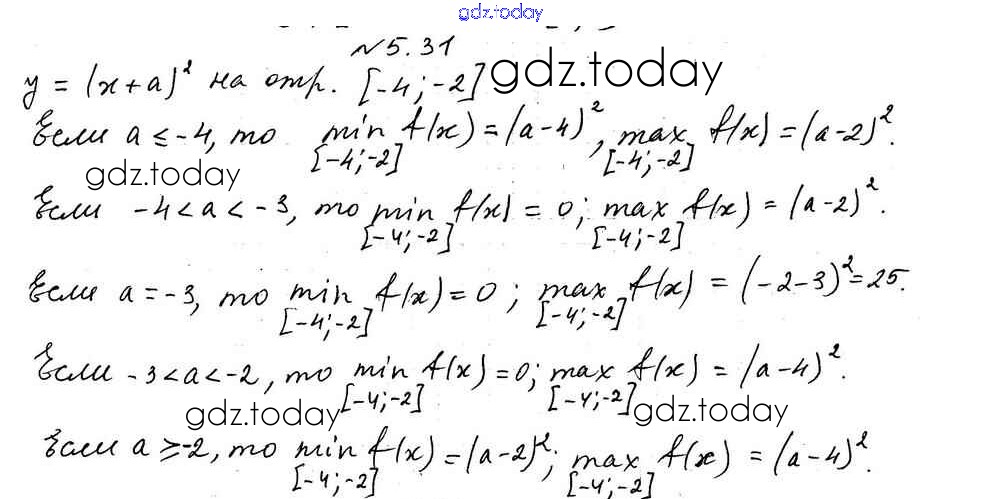 gdz.today
№5.31
y = (x+a)² на отр. [-4;-2] gdz.today
Если a ≤ -4, то min f(x) = (a-4)², max f(x) = (a-2)².
[-4;-2] [-4;-2]
gdz.today
Если -4 < a < -3, то min f(x) = 0; max f(x) = (a-2)².
[-4;-2] [-4;-2]
Если a = -3, то min f(x) = 0; max f(x) = (-2-3)² = 25.
[-4;-2] [-4;-2]
Если -3 < a < -2, то min f(x) = 0; max f(x) = (a-4)².
[-4;-2] [-4;-2]
gdz.today gdz.today
Если a ≥ -2, то min f(x) = (a-2)²; max f(x) = (a-4)².
[-4;-2] [-4;-2]